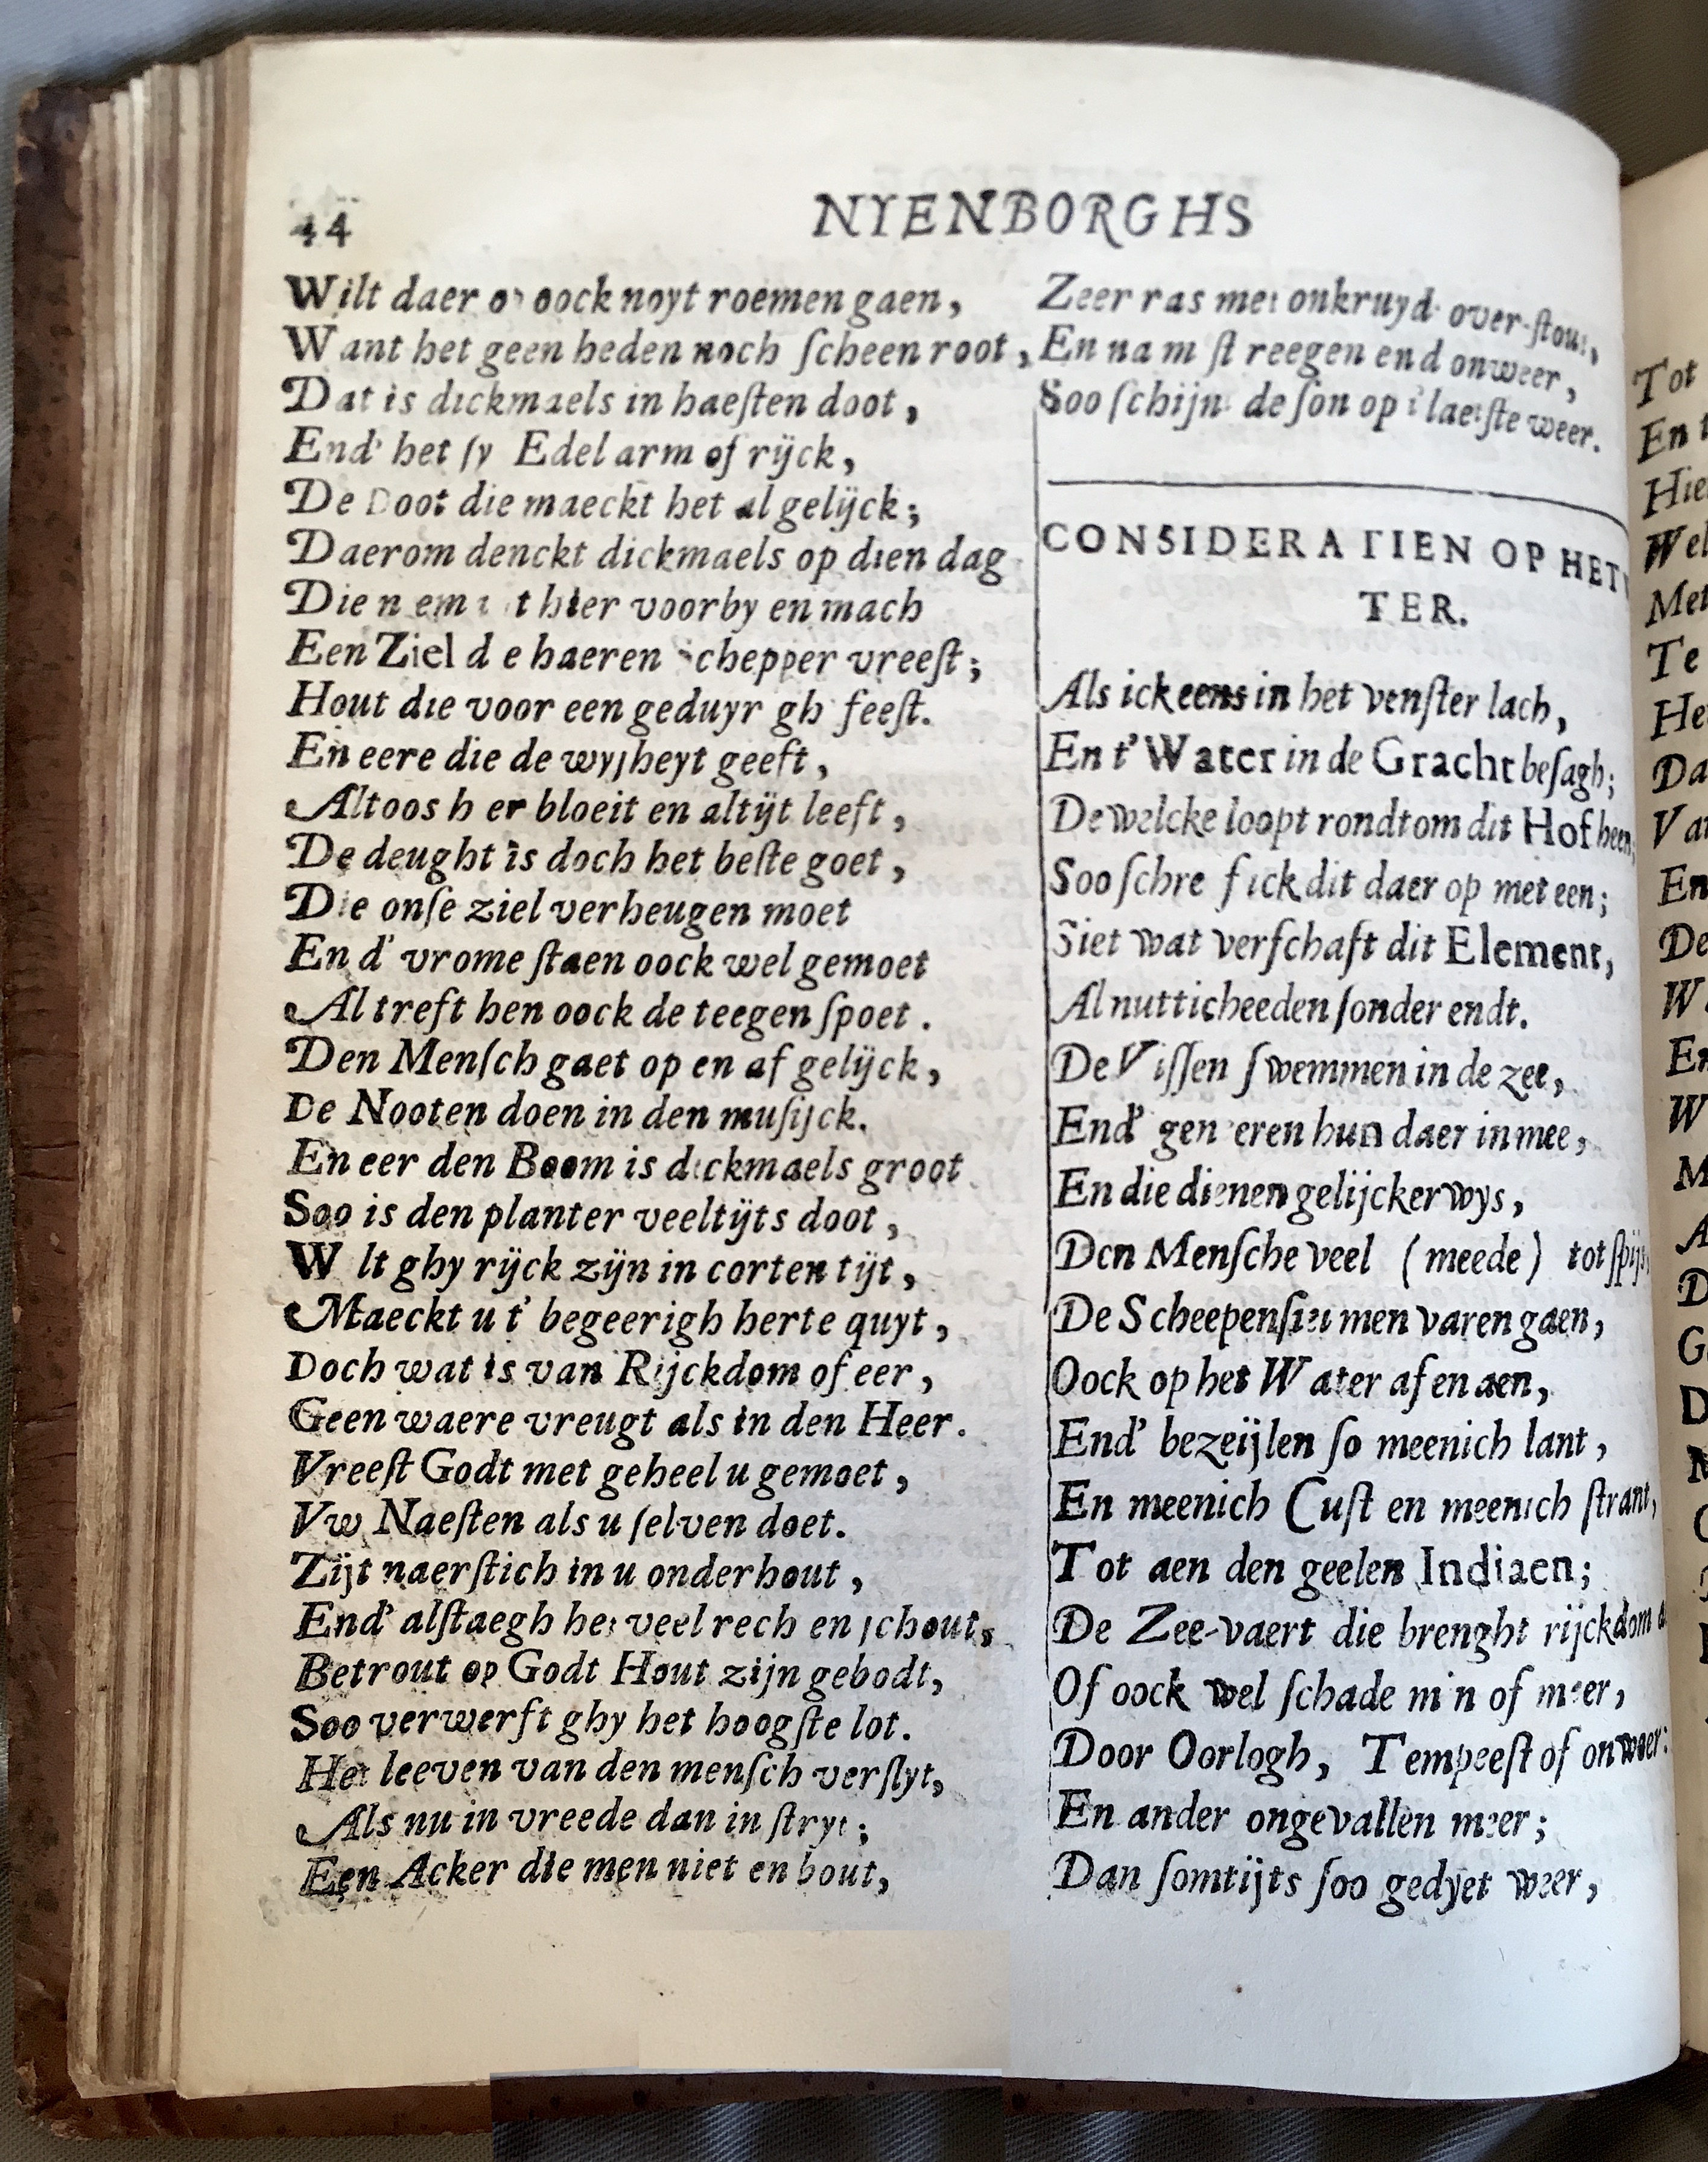 44
NYENBORGHS
Wilt daer op oock noyt roemen gaen,
Want het geen heden noch ſcheen root,
Dat is dickmaels in haeſten doot,
End' het ſy Edel arm of rijck,
De Doot die maeckt het al gelijck;
Daerom denckt dickmaels op dien dag
Die hier voorby en mach
Een Ziel d e haeren Schepper vreeſt;
Hout die voor een geduyr gh feeſt.
En eere die de wyſheyt geeft,
Altoos h er bloeit en altijt leeft,
De deught is doch het beſte goet,
Die onſe ziel verheugen moet
En d' vrome ſtaen oock wel gemoet
Al treft hen oock de teegen ſpoet.
Den Menſch gaet op en af gelijck,
De Nooten doen in den muſijck.
En eer den Boom is dickmaels groot
Soo is den planter veeltijts doot,
W lt ghy rijck zijn in corten tijt,
Maeckt u t' begeerigh herte quyt,
Doch wat is van Rijckdom of eer,
Geen waere vreugt als in den Heer.
Vreeſt Godt met geheel u gemoet,
Vw Naeſten als u ſelven doet.
Zijt naerſtich in u onderhout,
End' alſtaegh het veel rech en ſchout,
Betrout op Godt Hout zijn gebodt,
Soo verwerft ghy het hoogſte lot.
Het leeven van den menſch verſlyt,
Als nu in vreede dan in ſtryt;
Een Acker die men niet en bout,
Zeer ras met onkruyd over-ſtout,
En na m ſt reegen end onweer,
Soo ſchijn de ſon op t' laetſte weer.
CONSIDERATIEN OP HET
TER.
Als ick eens in het venſter lach,
En t' Water in de Gracht beſagh;
De welcke loopt rondtom dit Hof heen,
Soo ſchre f ick dit daer op met een;
Siet wat verſchaft dit Element,
Al nutticheeden ſonder endt.
De Viſſen ſwemmen in de zee,
End' gen eren hun daer in mee,
En die dienen gelijckerwys,
Den Menſche veel (meede) tot ſpijs,
De Scheepen ſiet men varen gaen,
Oock op het Water af en aen,
End' bezeijlen ſo meenich lant,
En meenich Cuſt en meenich ſtrant,
Tot aen den geelen Indiaen;
De Zee-vaert die brenght rijckdom
Of oock wel ſchade m n of meer,
Door Oorlogh, Tempeeſt of onweer:
En ander ongevallen meer;
Dan ſomtijts ſoo gedyet weer,
Tot
En
Hie
Wel
Met
Te
He
Da
Va
En
De
W
En
W
M
A
D
G
D